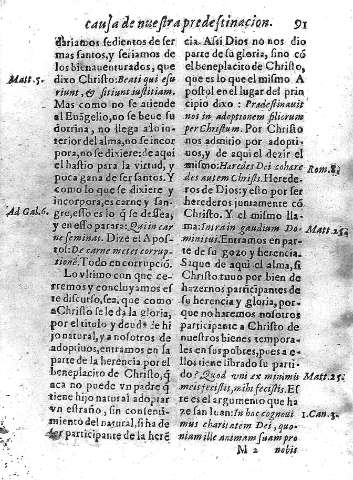 causa de nuestra predestinacion. 91
dariamos sedientos de ser
mas santos, y seriamos de
los bienauenturados, que
Matt. 5.
dixo Christo: Beati qui esu
riunt, & sitiunt iustitiam.
Mas como no se atiende
al Euãgelio, no se beue su
dotrina, no llega a lo in-
terior del alma, no se incor
pora, no se dixiere: de aqui
el hastio para la virtud, y
poca gana de ser santos. Y
como lo que se dixiere y
incorpora, es carne y san-
Ad Gal. 6.
gre, esso es lo q̃ se desea,
y en esso parara: Qui in car
ne seminat. Dize el Apos-
tol: De carne metet corrup-
tionẽ. Todo en corrupciõ.
Lo vltimo con que ce-
rremos y concluyamos es
te discurso, sea, que como
a Christo se le da la gloria,
por el titulo y deuda de hi
jo natural, y a nosotros de
adoptiuos, entramos en la
parte de la herencia por el
beneplacito de Christo, q̃
aca no puede vn padre q̃
tiene hijo natural adoptar
vn estraño, sin consenti-
miento del natural, si ha de
ser participante de la herẽ
cia. Assi Dios no nos dio
parte de su gloria, sino cõ
el beneplacito de Christo,
que es lo que el mismo A
postol en el lugar del prin
cipio dixo: Prædestinauit
nos in adoptionem filiorum
per Christum. Por Christo
nos admitio por adopti-
uos, y de aqui el dezir el
mismo: Heredes Dei cohære
Rom. 8.
des autem Christi. Herede-
ros de Dios: y esto por ser
herederos juntamente cõ
Christo. Y el mismo lla-
ma: Intra in gaudium Do-
Matt. 25.
mini tui. Entramos en par-
te de su gozo y herencia.
Saque de aqui el alma, si
Christo tuuo por bien de
hazernos participantes de
su herencia y gloria, por-
que no haremos nosotros
participante a Christo de
nuestros bienes tempora-
les en sus pobres, pues a e-
llos tiene librado su parti-
do? Quod vni ex minimis
Matt. 25.
meis fecistis, mihi fecistis. Es
te es el argumento que ha
ze san Iuan: In hoc cognoui
1. Can. 3.
mus charitatem Dei, quo-
niam ille animam suam pro
M 2 nobis